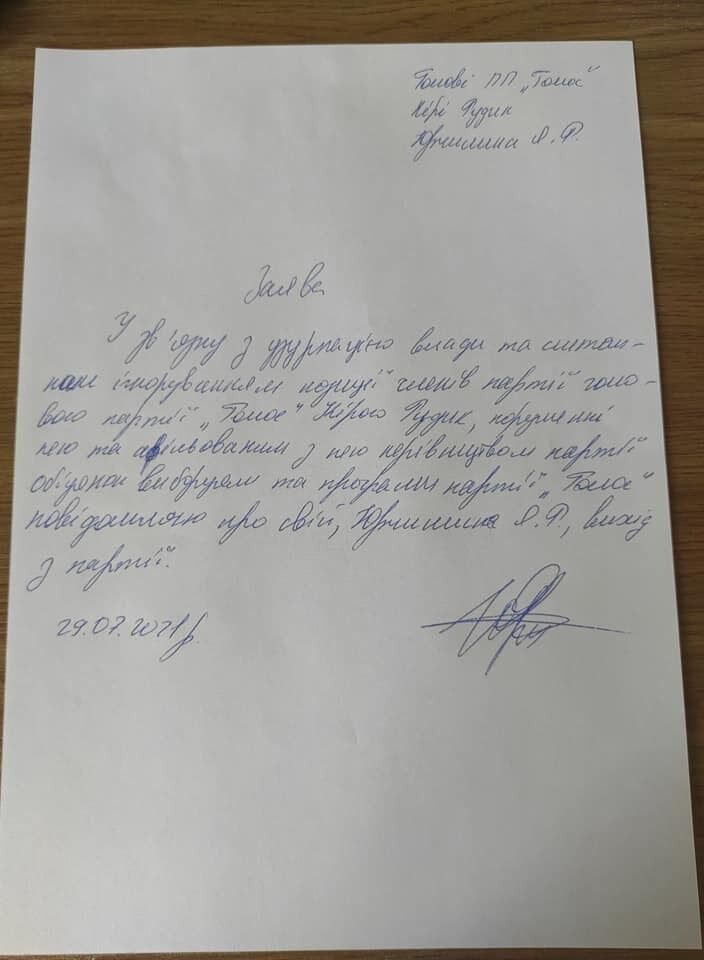 Голові ПП „Голос"
Кірі Рудик
Юрчишина Я. Р.
Заява
У зв'язку з узурпацією влади та систем-
ним ігноруванням позиції членів партії голо-
вою партії „Голос" Кірою Рудик, порушенні
нею та афільованим з нею керівництвом партії
обіцянок виборцям та програми партії „Голос"
повідомляю про свій, Юрчишина Я. Р., вихід
з партії.
29.07.2021 р.